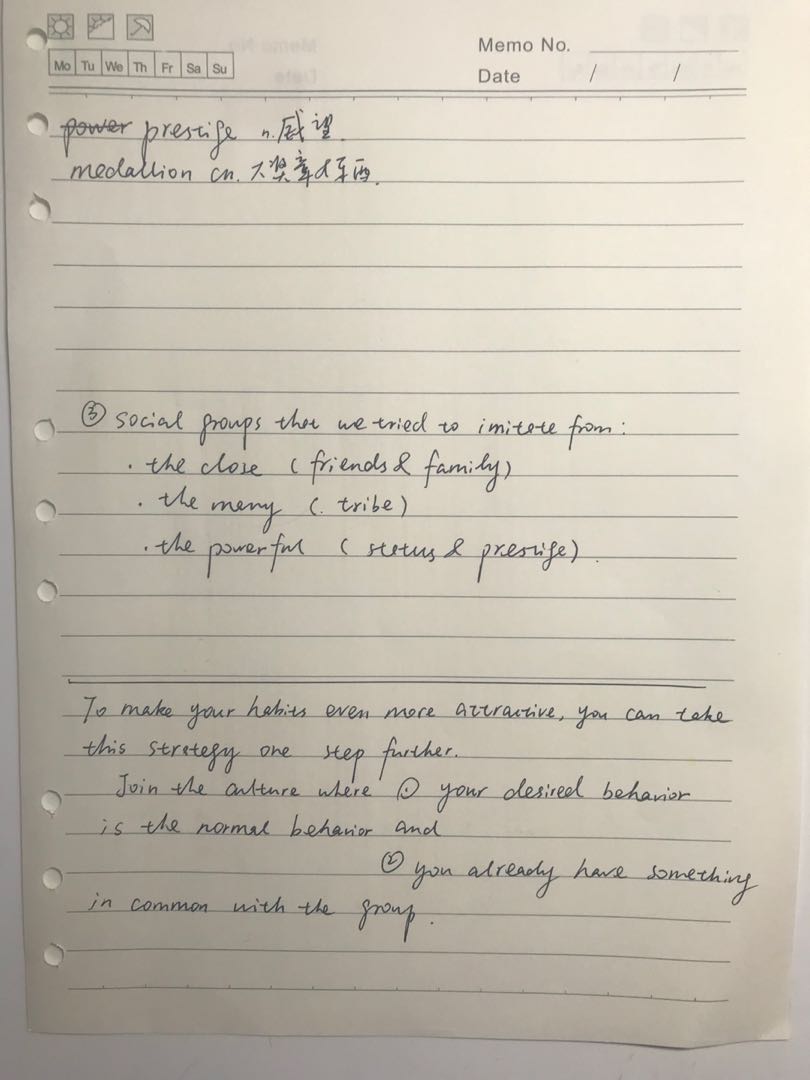 Memo No.
Mo Tu We Th Fr Sa Su
Date / /
power prestige n. 威望.
medallion cn. 大奖章d东西.
③ social groups that we tried to imitate from:
· the close (friends & family)
· the many (. tribe)
· the powerful (status & prestige).
To make your habits even more attractive, you can take
this strategy one step further.
Join the culture where ① your desired behavior
is the normal behavior and
② you already have something
in common with the group.